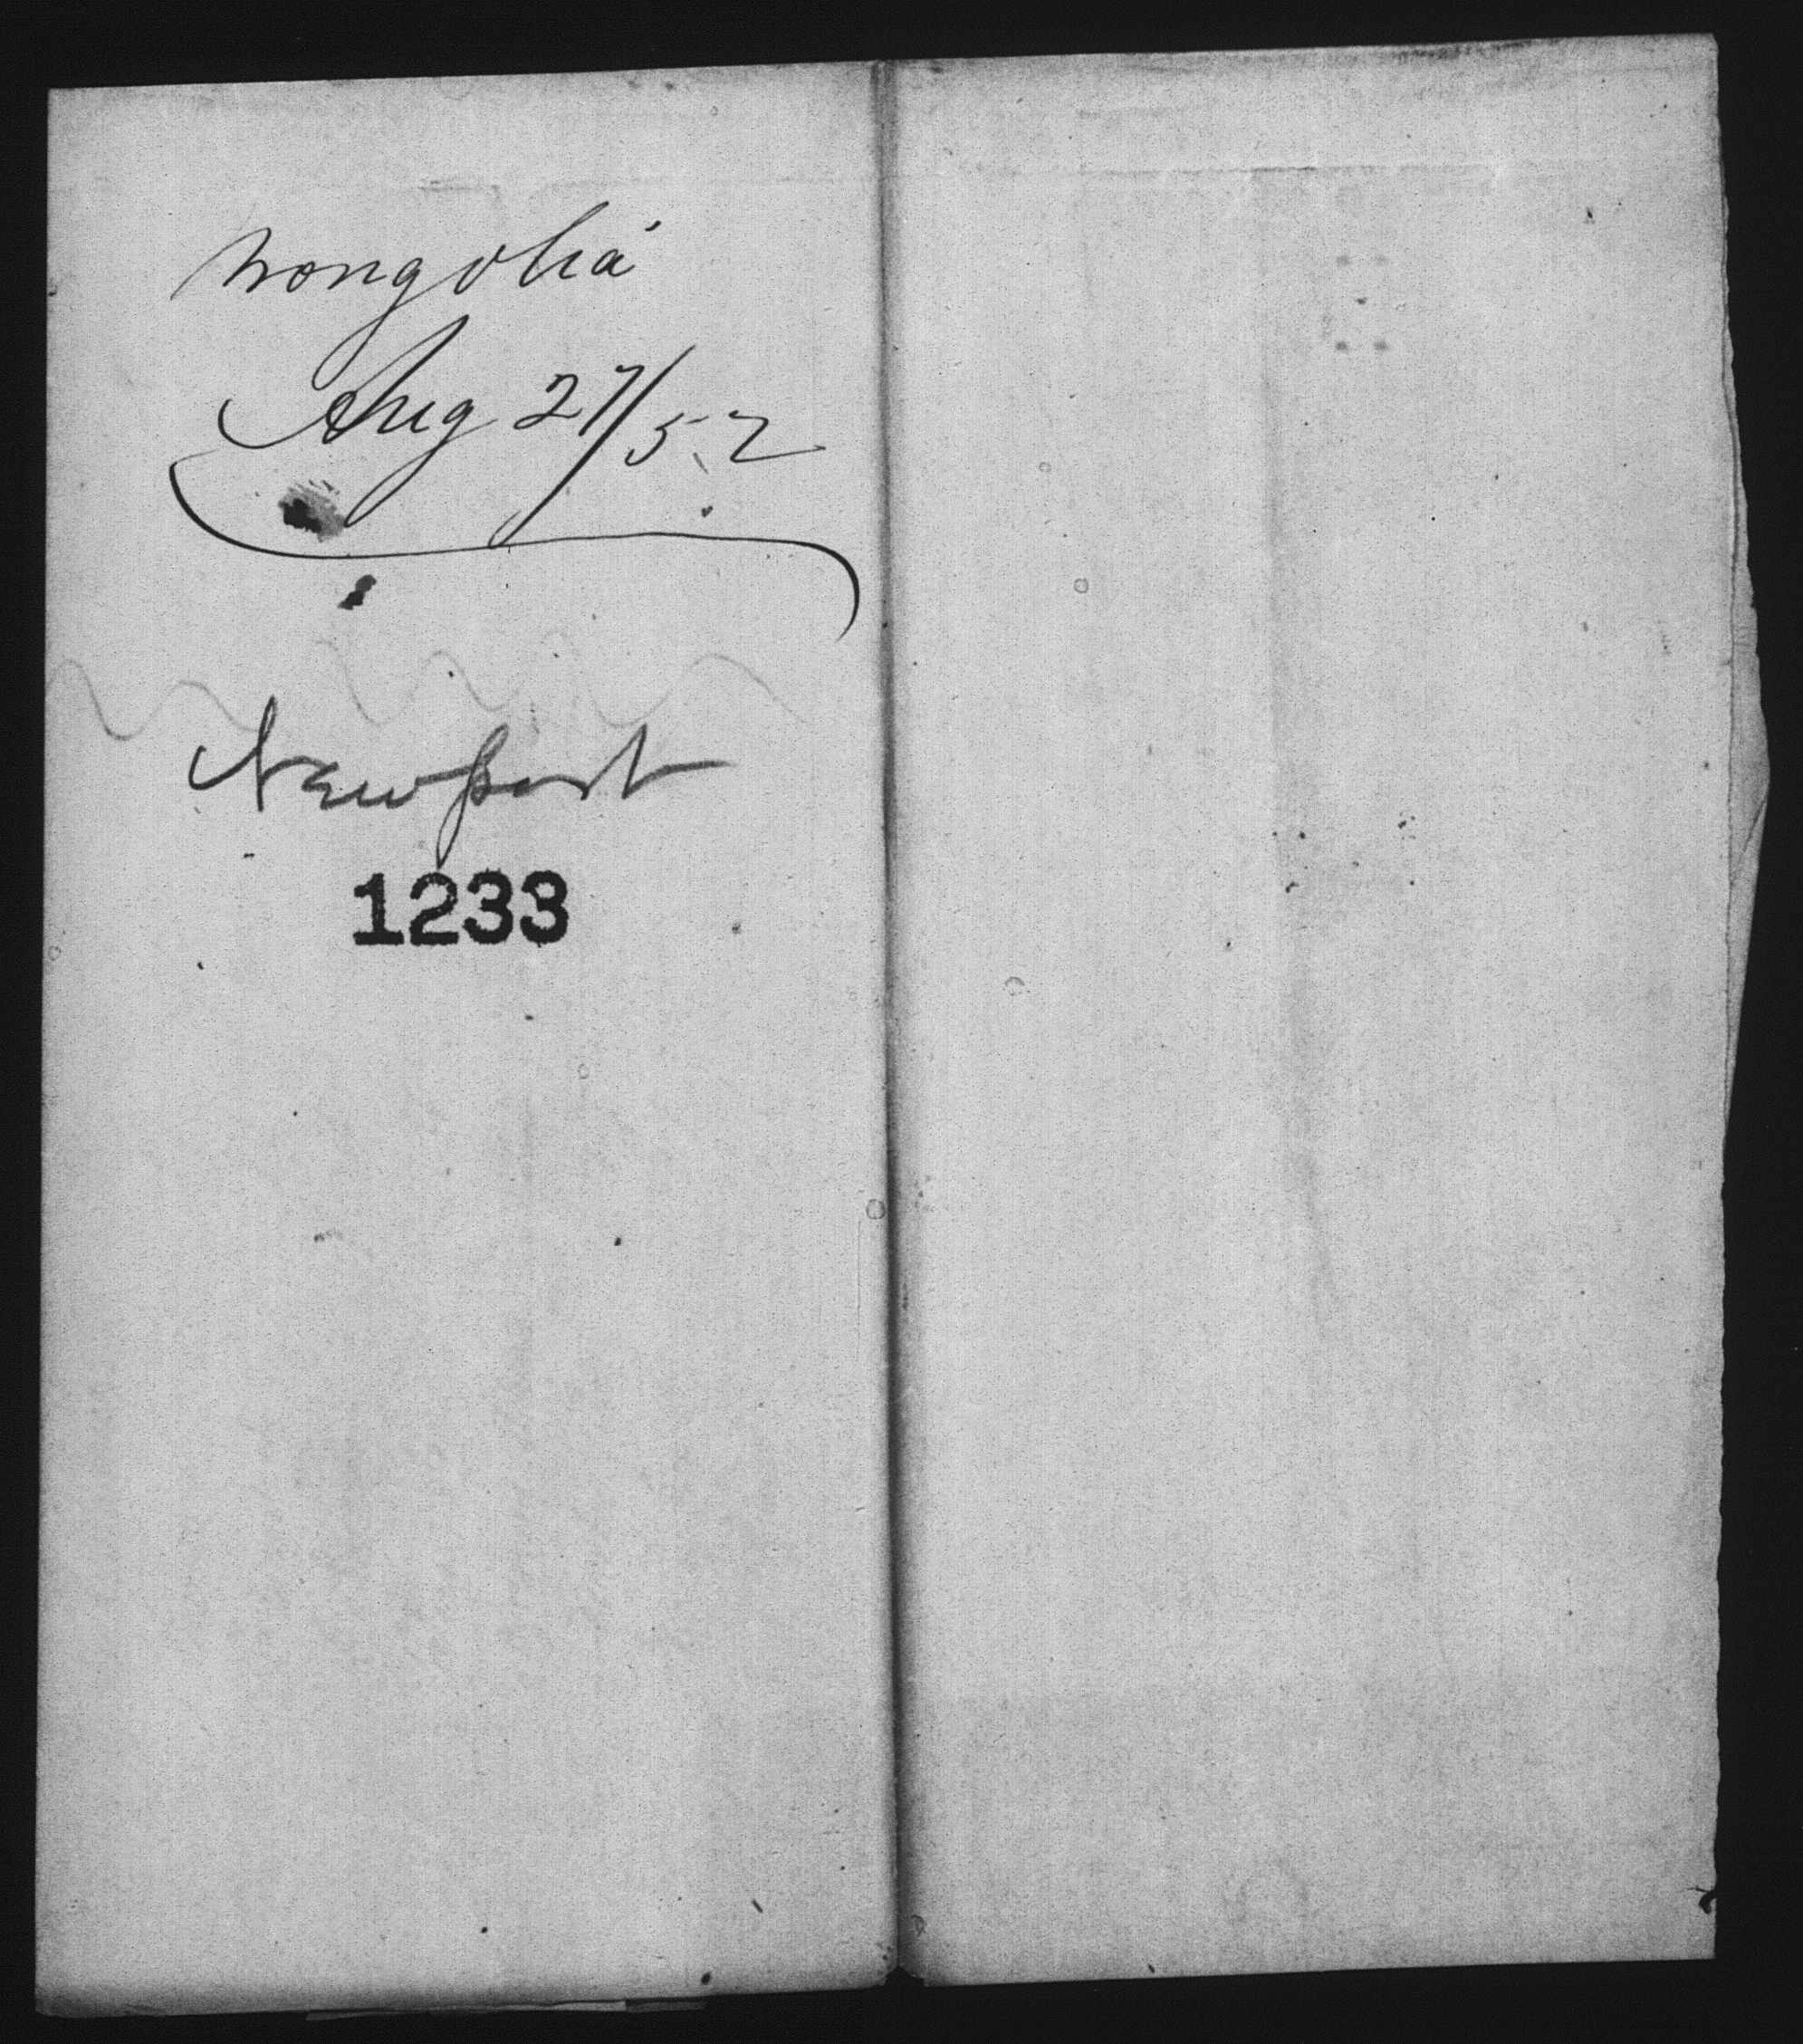 Mongolia
Aug 27/52
Newport
1233